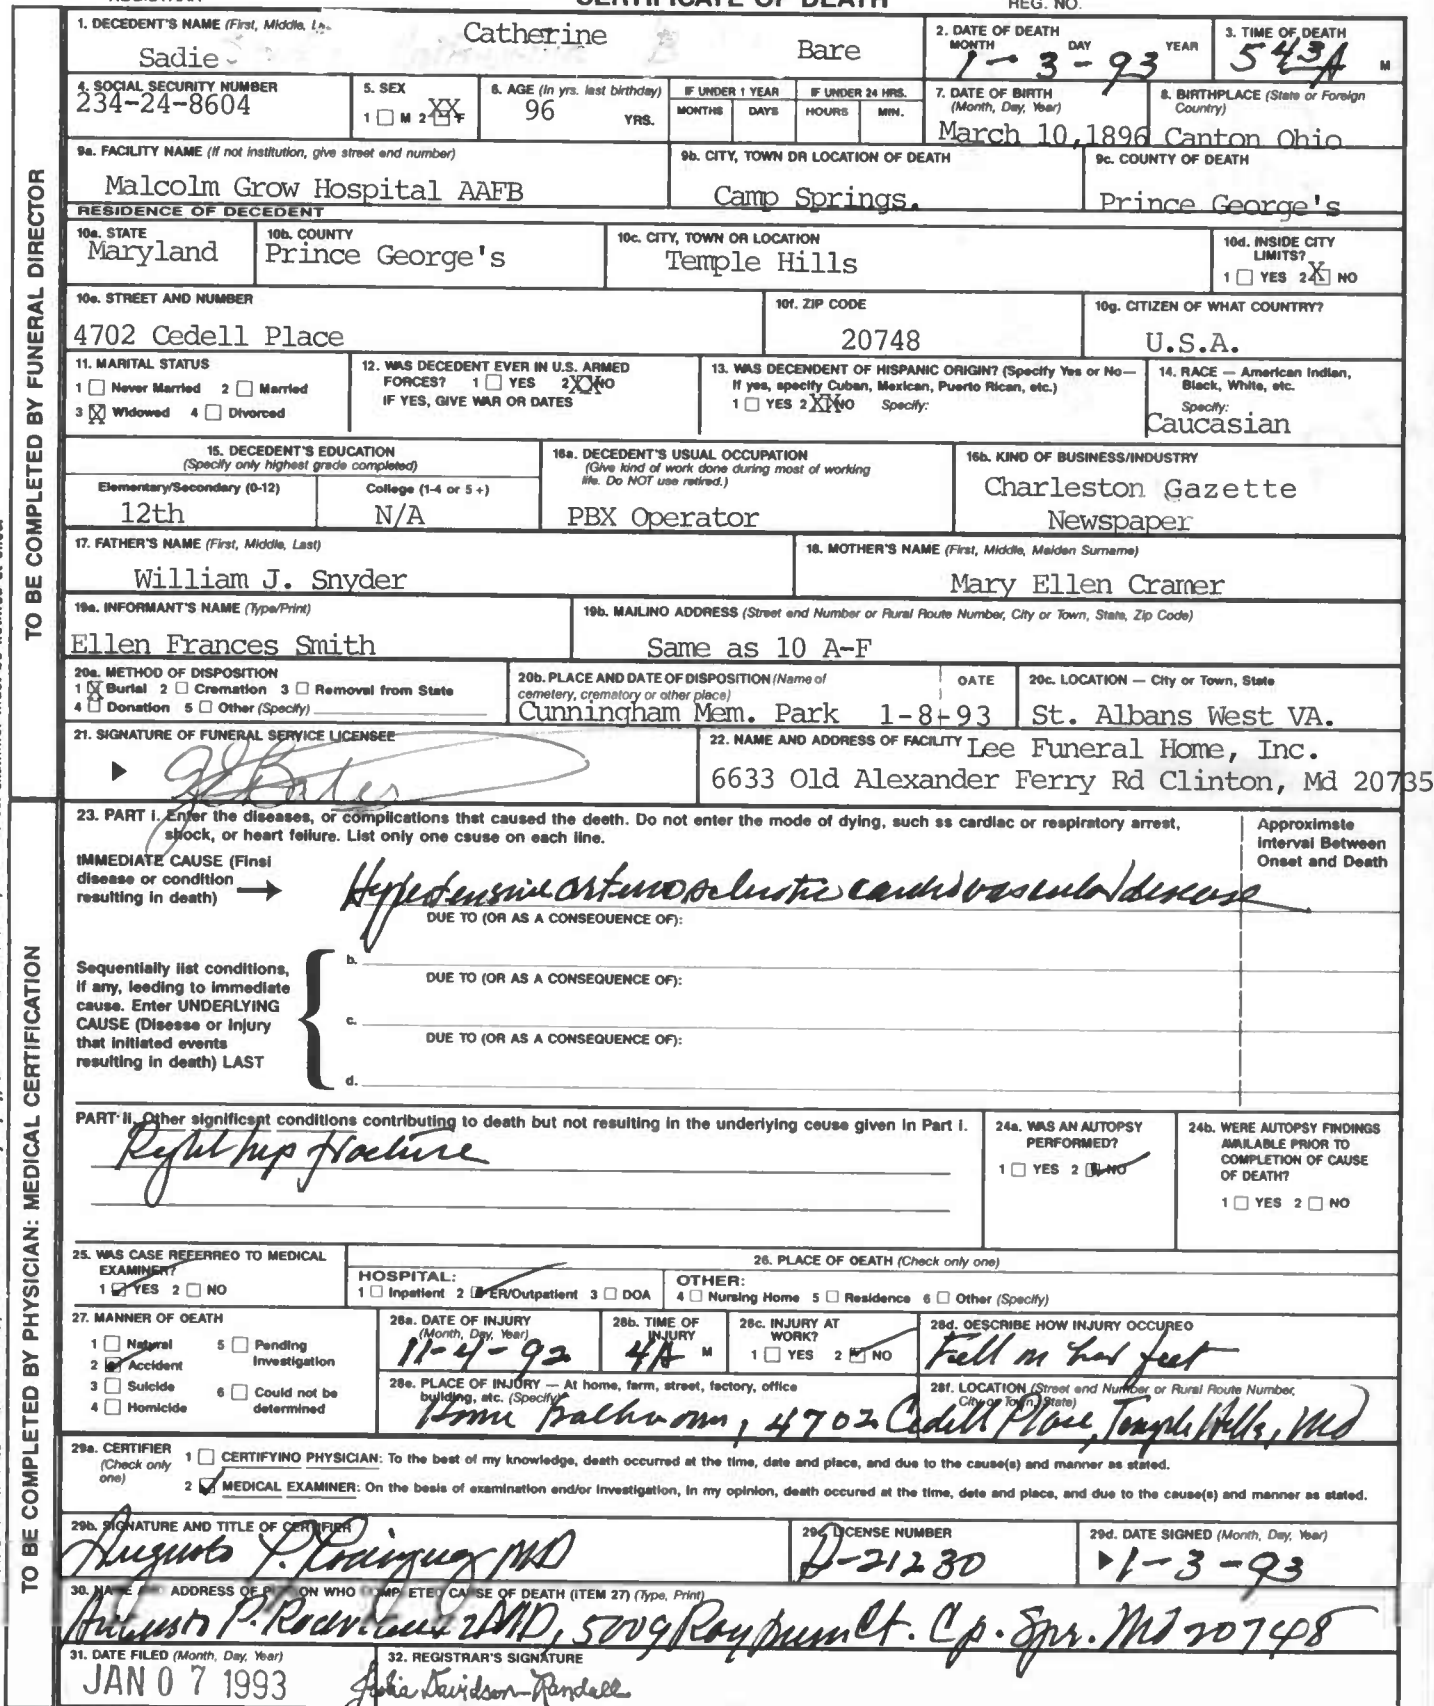 CERTIFICATE OF DEATH
REG. NO.
1. DECEDENT'S NAME (First, Middle, 
Sadie Catherine Bare
2. DATE OF DEATH
MONTH DAY YEAR
1-3-93
3. TIME OF DEATH
543A M
4. SOCIAL SECURITY NUMBER
234-24-8604
5. SEX
1 M 2 XX F
6. AGE (In yrs. last birthday)
96 YRS.
IF UNDER 1 YEAR
MONTHS DAYS
IF UNDER 24 HRS.
HOURS MIN.
7. DATE OF BIRTH
(Month, Day, Year)
March 10,1896
8. BIRTHPLACE (State or Foreign
Country)
Canton Ohio
9a. FACILITY NAME (If not institution, give street and number)
Malcolm Grow Hospital AAFB
9b. CITY, TOWN OR LOCATION OF DEATH
Camp Springs.
9c. COUNTY OF DEATH
Prince George's
RESIDENCE OF DECEDENT
10a. STATE
Maryland
10b. COUNTY
Prince George's
10c. CITY, TOWN OR LOCATION
Temple Hills
10d. INSIDE CITY
LIMITS?
1 YES 2 X NO
10e. STREET AND NUMBER
4702 Cedell Place
10f. ZIP CODE
20748
10g. CITIZEN OF WHAT COUNTRY?
U.S.A.
11. MARITAL STATUS
1 Never Married 2 Married
3 X Widowed 4 Divorced
12. WAS DECEDENT EVER IN U.S. ARMED
FORCES? 1 YES 2 XX NO
IF YES, GIVE WAR OR DATES
13. WAS DECENDENT OF HISPANIC ORIGIN? (Specify Yes or No—
If yes, specify Cuban, Mexican, Puerto Rican, etc.)
1 YES 2 XX NO Specify:
14. RACE — American Indian,
Black, White, etc.
Specify:
Caucasian
15. DECEDENT'S EDUCATION
(Specify only highest grade completed)
Elementary/Secondary (0-12)
12th
College (1-4 or 5+)
N/A
16a. DECEDENT'S USUAL OCCUPATION
(Give kind of work done during most of working
life. Do NOT use retired.)
PBX Operator
16b. KIND OF BUSINESS/INDUSTRY
Charleston Gazette
Newspaper
17. FATHER'S NAME (First, Middle, Last)
William J. Snyder
18. MOTHER'S NAME (First, Middle, Maiden Surname)
Mary Ellen Cramer
19a. INFORMANT'S NAME (Type/Print)
Ellen Frances Smith
19b. MAILING ADDRESS (Street and Number or Rural Route Number, City or Town, State, Zip Code)
Same as 10 A-F
20a. METHOD OF DISPOSITION
1 X Burial 2 Cremation 3 Removal from State
4 Donation 5 Other (Specify)
20b. PLACE AND DATE OF DISPOSITION (Name of
cemetery, crematory or other place)
DATE
Cunningham Mem. Park 1-8-93
20c. LOCATION — City or Town, State
St. Albans West VA.
21. SIGNATURE OF FUNERAL SERVICE LICENSEE
Bates
22. NAME AND ADDRESS OF FACILITY Lee Funeral Home, Inc.
6633 Old Alexander Ferry Rd Clinton, Md 20735
TO BE COMPLETED BY FUNERAL DIRECTOR
23. PART I. Enter the diseases, or complications that caused the death. Do not enter the mode of dying, such as cardiac or respiratory arrest,
shock, or heart failure. List only one cause on each line.
Approximate
Interval Between
Onset and Death
IMMEDIATE CAUSE (Final
disease or condition
resulting in death)
Hypertensive arteriosclerotic cardiovascular disease
DUE TO (OR AS A CONSEQUENCE OF):
Sequentially list conditions,
if any, leading to immediate
cause. Enter UNDERLYING
CAUSE (Disease or injury
that initiated events
resulting in death) LAST
b.
DUE TO (OR AS A CONSEQUENCE OF):
c.
DUE TO (OR AS A CONSEQUENCE OF):
d.
PART II. Other significant conditions contributing to death but not resulting in the underlying cause given in Part I.
Right hip fracture
24a. WAS AN AUTOPSY
PERFORMED?
1 YES 2 NO
24b. WERE AUTOPSY FINDINGS
AVAILABLE PRIOR TO
COMPLETION OF CAUSE
OF DEATH?
1 YES 2 NO
25. WAS CASE REFERRED TO MEDICAL
EXAMINER?
1 YES 2 NO
26. PLACE OF DEATH (Check only one)
HOSPITAL:
1 Inpatient 2 ER/Outpatient 3 DOA
OTHER:
4 Nursing Home 5 Residence 6 Other (Specify)
27. MANNER OF DEATH
1 Natural 5 Pending
Investigation
2 Accident
3 Suicide 6 Could not be
determined
4 Homicide
28a. DATE OF INJURY
(Month, Day, Year)
11-4-92
28b. TIME OF
INJURY
4A M
28c. INJURY AT
WORK?
1 YES 2 NO
28d. DESCRIBE HOW INJURY OCCURED
Fell on her feet
28e. PLACE OF INJURY — At home, farm, street, factory, office
building, etc. (Specify)
Home Bathroom,
28f. LOCATION (Street and Number or Rural Route Number,
City or Town, State)
4702 Cedell Place, Temple Hills, Md
29a. CERTIFIER
(Check only
one)
1 CERTIFYING PHYSICIAN: To the best of my knowledge, death occurred at the time, date and place, and due to the cause(s) and manner as stated.
2 MEDICAL EXAMINER: On the basis of examination and/or investigation, in my opinion, death occured at the time, date and place, and due to the cause(s) and manner as stated.
29b. SIGNATURE AND TITLE OF CERTIFIER
Augusto P. Rodriguez MD
29c. LICENSE NUMBER
D-21230
29d. DATE SIGNED (Month, Day, Year)
1-3-93
30. NAME AND ADDRESS OF PERSON WHO COMPLETED CAUSE OF DEATH (ITEM 27) (Type, Print)
Augusto P. Rodriguez MD, 5009 Rayburn Ct. Cp. Spr. Md 20748
31. DATE FILED (Month, Day, Year)
JAN 07 1993
32. REGISTRAR'S SIGNATURE
Julia Davidson-Randall
TO BE COMPLETED BY PHYSICIAN: MEDICAL CERTIFICATION